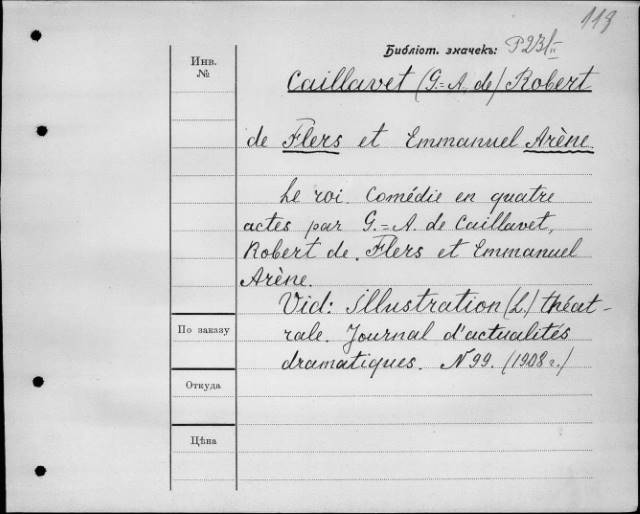 113
Библіот. значекъ: P231/II
Инв.
№
Caillavet (G.=A. de) Robert
de Flers et Emmanuel Arène
Le roi. Comédie en quatre
actes par G.=A. de Caillavet,
Robert de Flers et Emmanuel
Arène.
Vid: illustration (L.) théat-
rale. Journal d'actualités
dramatiques. N 99. (1908 г.)
По заказу
Откуда
Цѣна